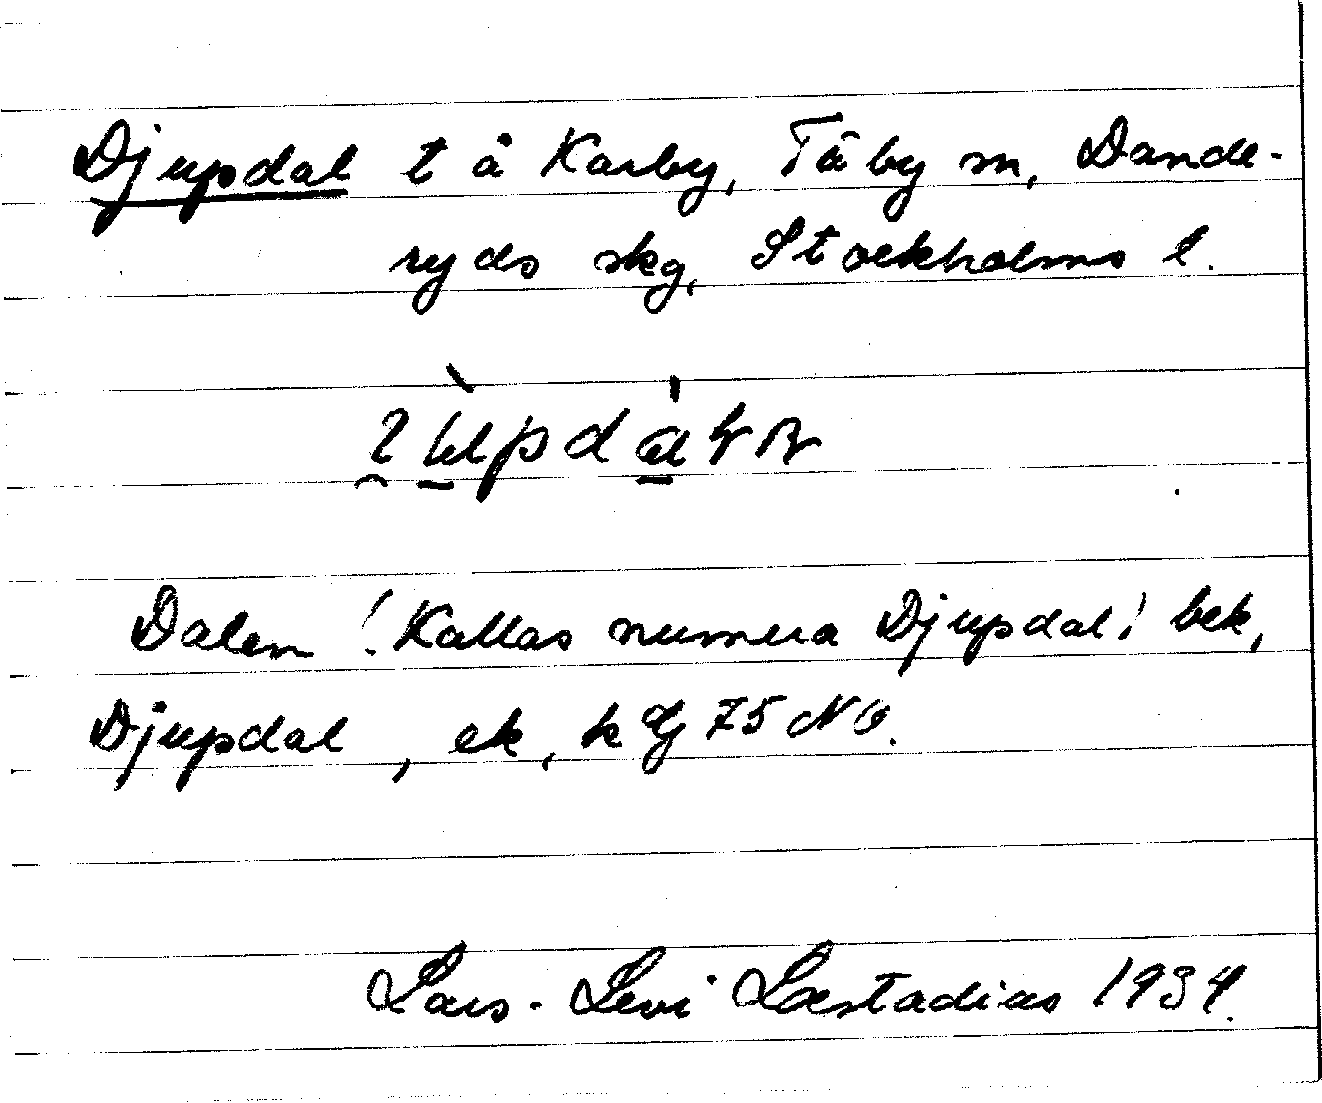 Djupdal t å Karby, Täby sn, Dande-
ryds skg, Stockholms l.
Dalen! Kallas numera Djupdal! bek,
Djupdal, ek, kg 75 NO.
Lars-Levi Læstadius 1934.